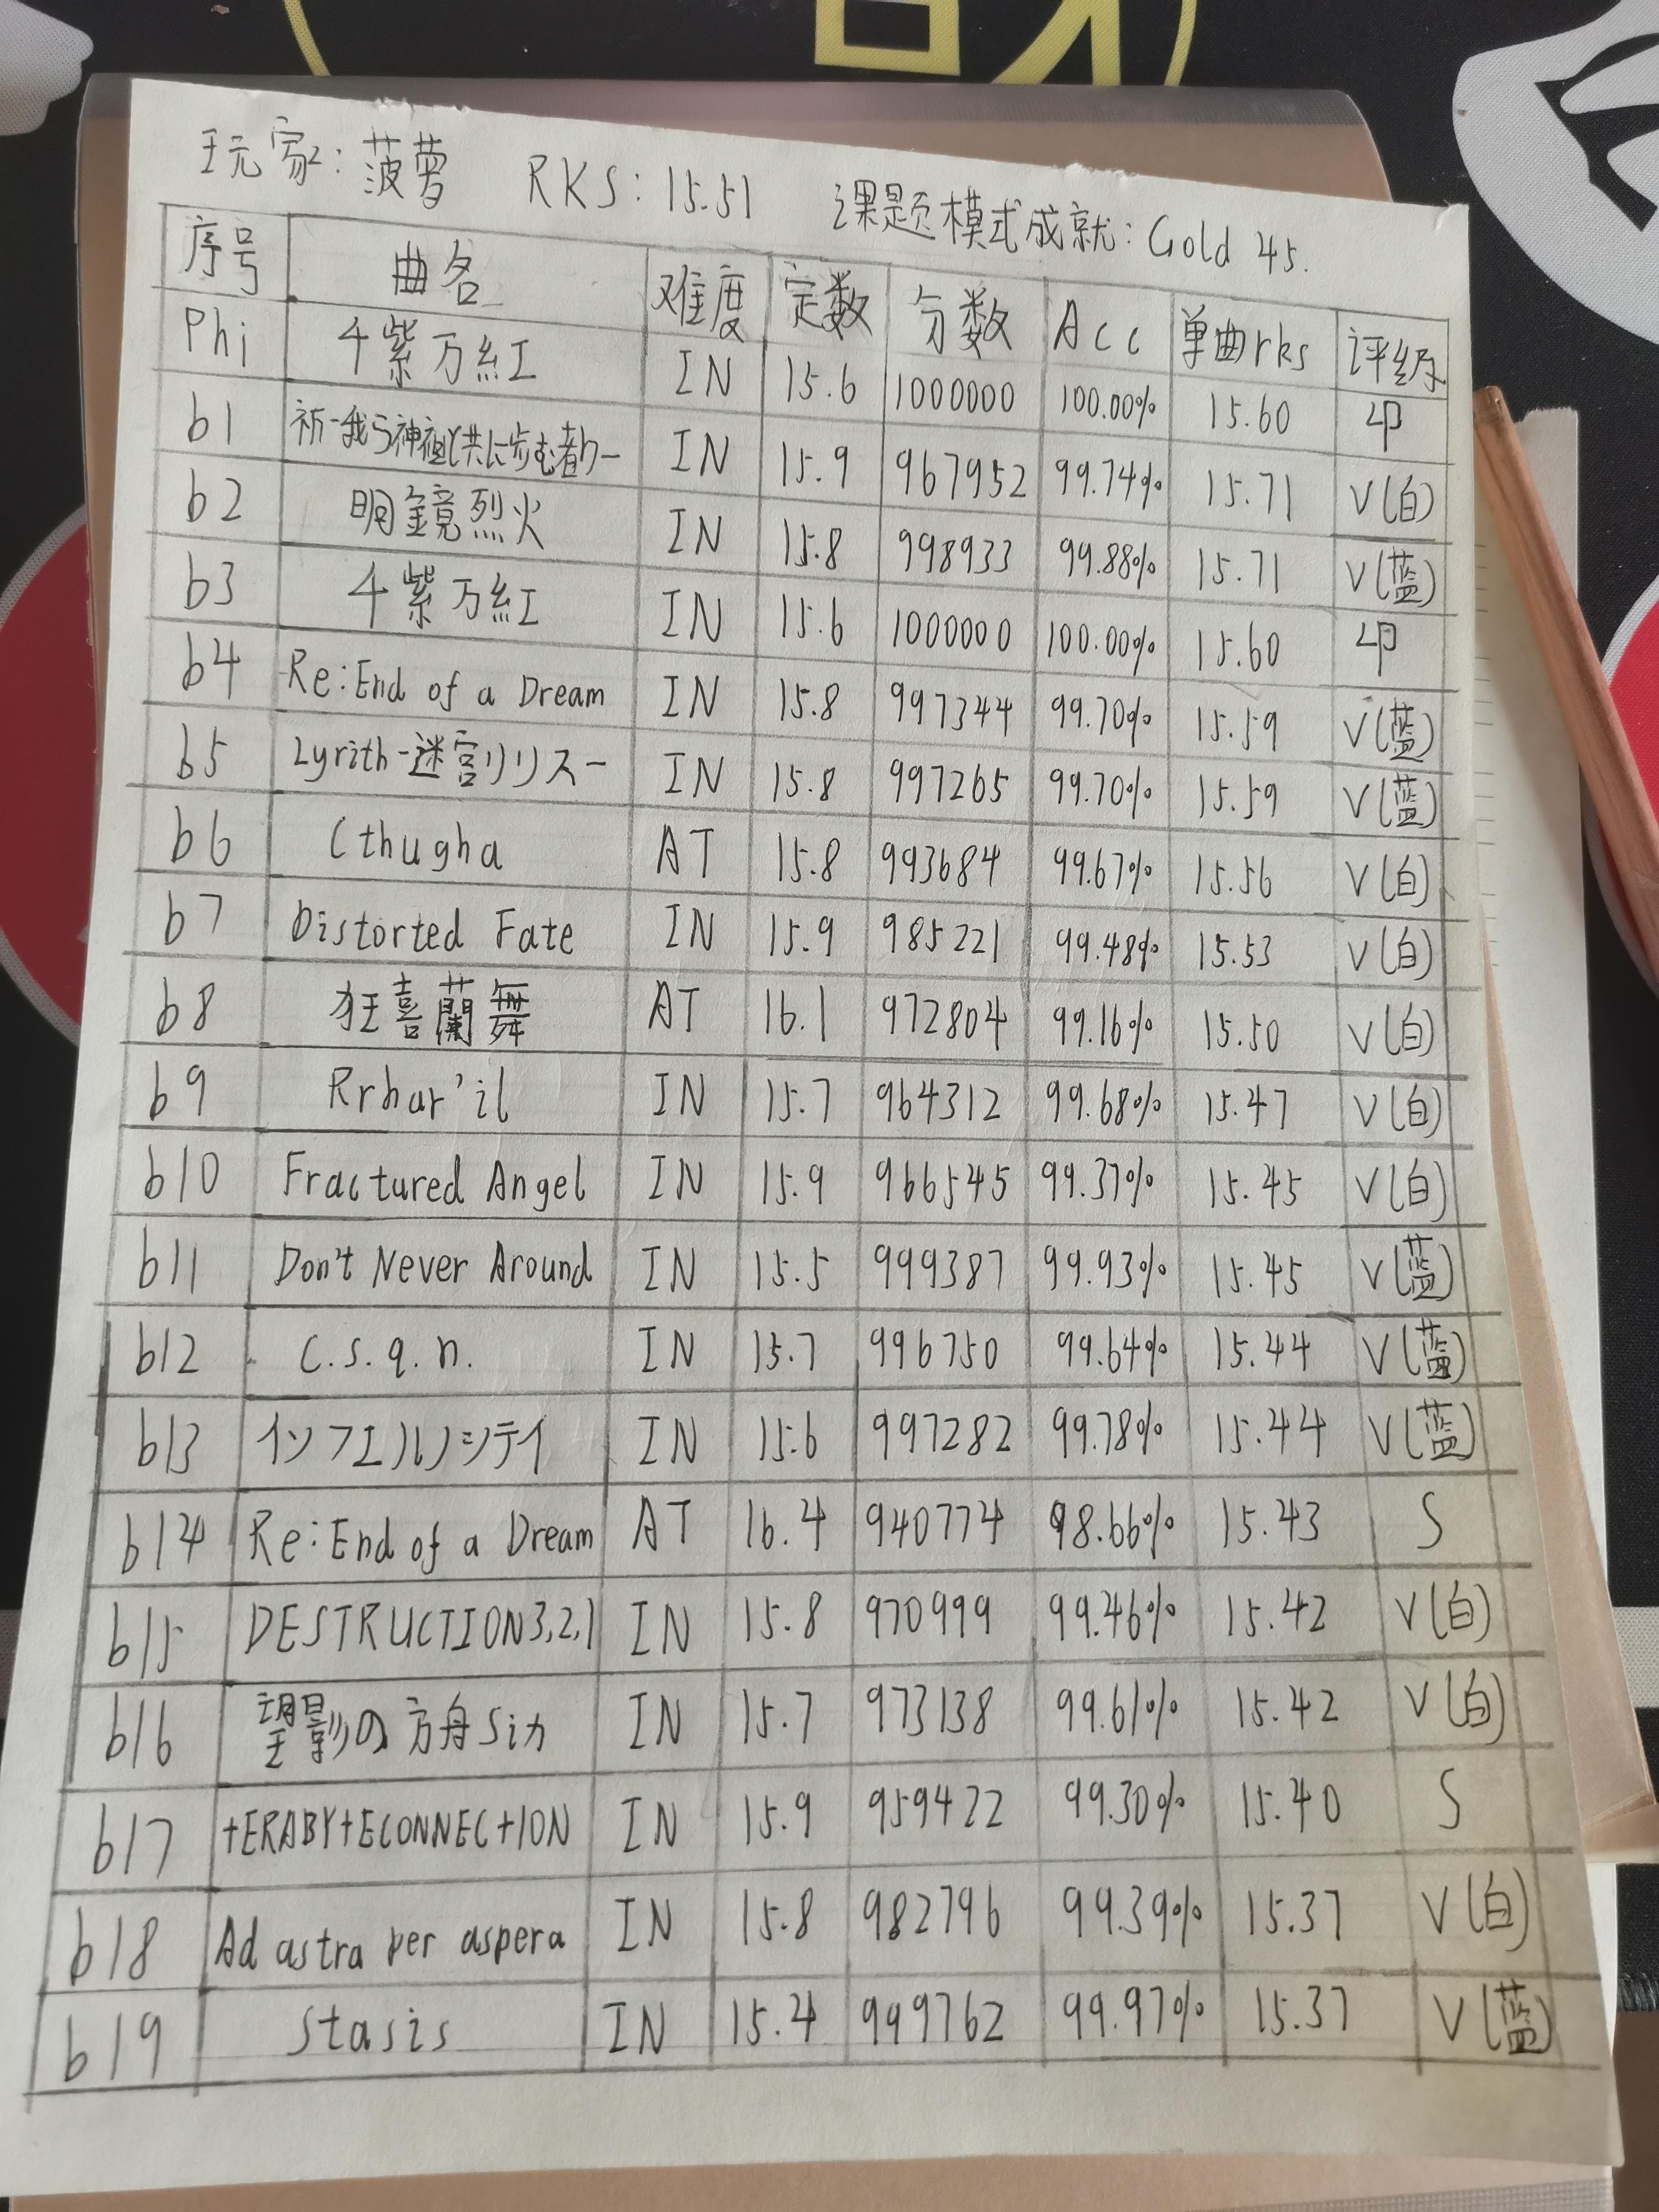 玩家: 菠萝 RKS: 15.51 课题模式成就: Gold 45.
序号 曲名 难度 定数 分数 Acc 单曲rks 评级
Phi 千紫万紅 IN 15.6 1000000 100.00% 15.60 φ
b1 祈-我ら神祖と共に歩む者なり- IN 15.9 967952 99.74% 15.71 V(白)
b2 明鏡烈火 IN 15.8 998933 99.88% 15.71 V(蓝)
b3 千紫万紅 IN 15.6 1000000 100.00% 15.60 φ
b4 Re:End of a Dream IN 15.8 997344 99.70% 15.59 V(蓝)
b5 Lyrith-迷宮リリス- IN 15.8 997265 99.70% 15.59 V(蓝)
b6 Cthugha AT 15.8 993684 99.67% 15.56 V(白)
b7 Distorted Fate IN 15.9 985221 99.48% 15.53 V(白)
b8 狂喜蘭舞 AT 16.1 972804 99.16% 15.50 V(白)
b9 Rrhar'il IN 15.7 964312 99.68% 15.47 V(白)
b10 Fractured Angel IN 15.9 966545 99.37% 15.45 V(白)
b11 Don't Never Around IN 15.5 999387 99.93% 15.45 V(蓝)
b12 C.s.q.n. IN 15.7 996750 99.64% 15.44 V(蓝)
b13 インフェルノシティ IN 15.6 997282 99.78% 15.44 V(蓝)
b14 Re:End of a Dream AT 16.4 940774 98.66% 15.43 S
b15 DESTRUCTION3,2,1 IN 15.8 970999 99.46% 15.42 V(白)
b16 望影の方舟Six IN 15.7 973138 99.61% 15.42 V(白)
b17 +ERABY+ECONNEC+ION IN 15.9 959422 99.30% 15.40 S
b18 Ad astra per aspera IN 15.8 982796 99.39% 15.37 V(白)
b19 Stasis IN 15.4 999762 99.97% 15.37 V(蓝)